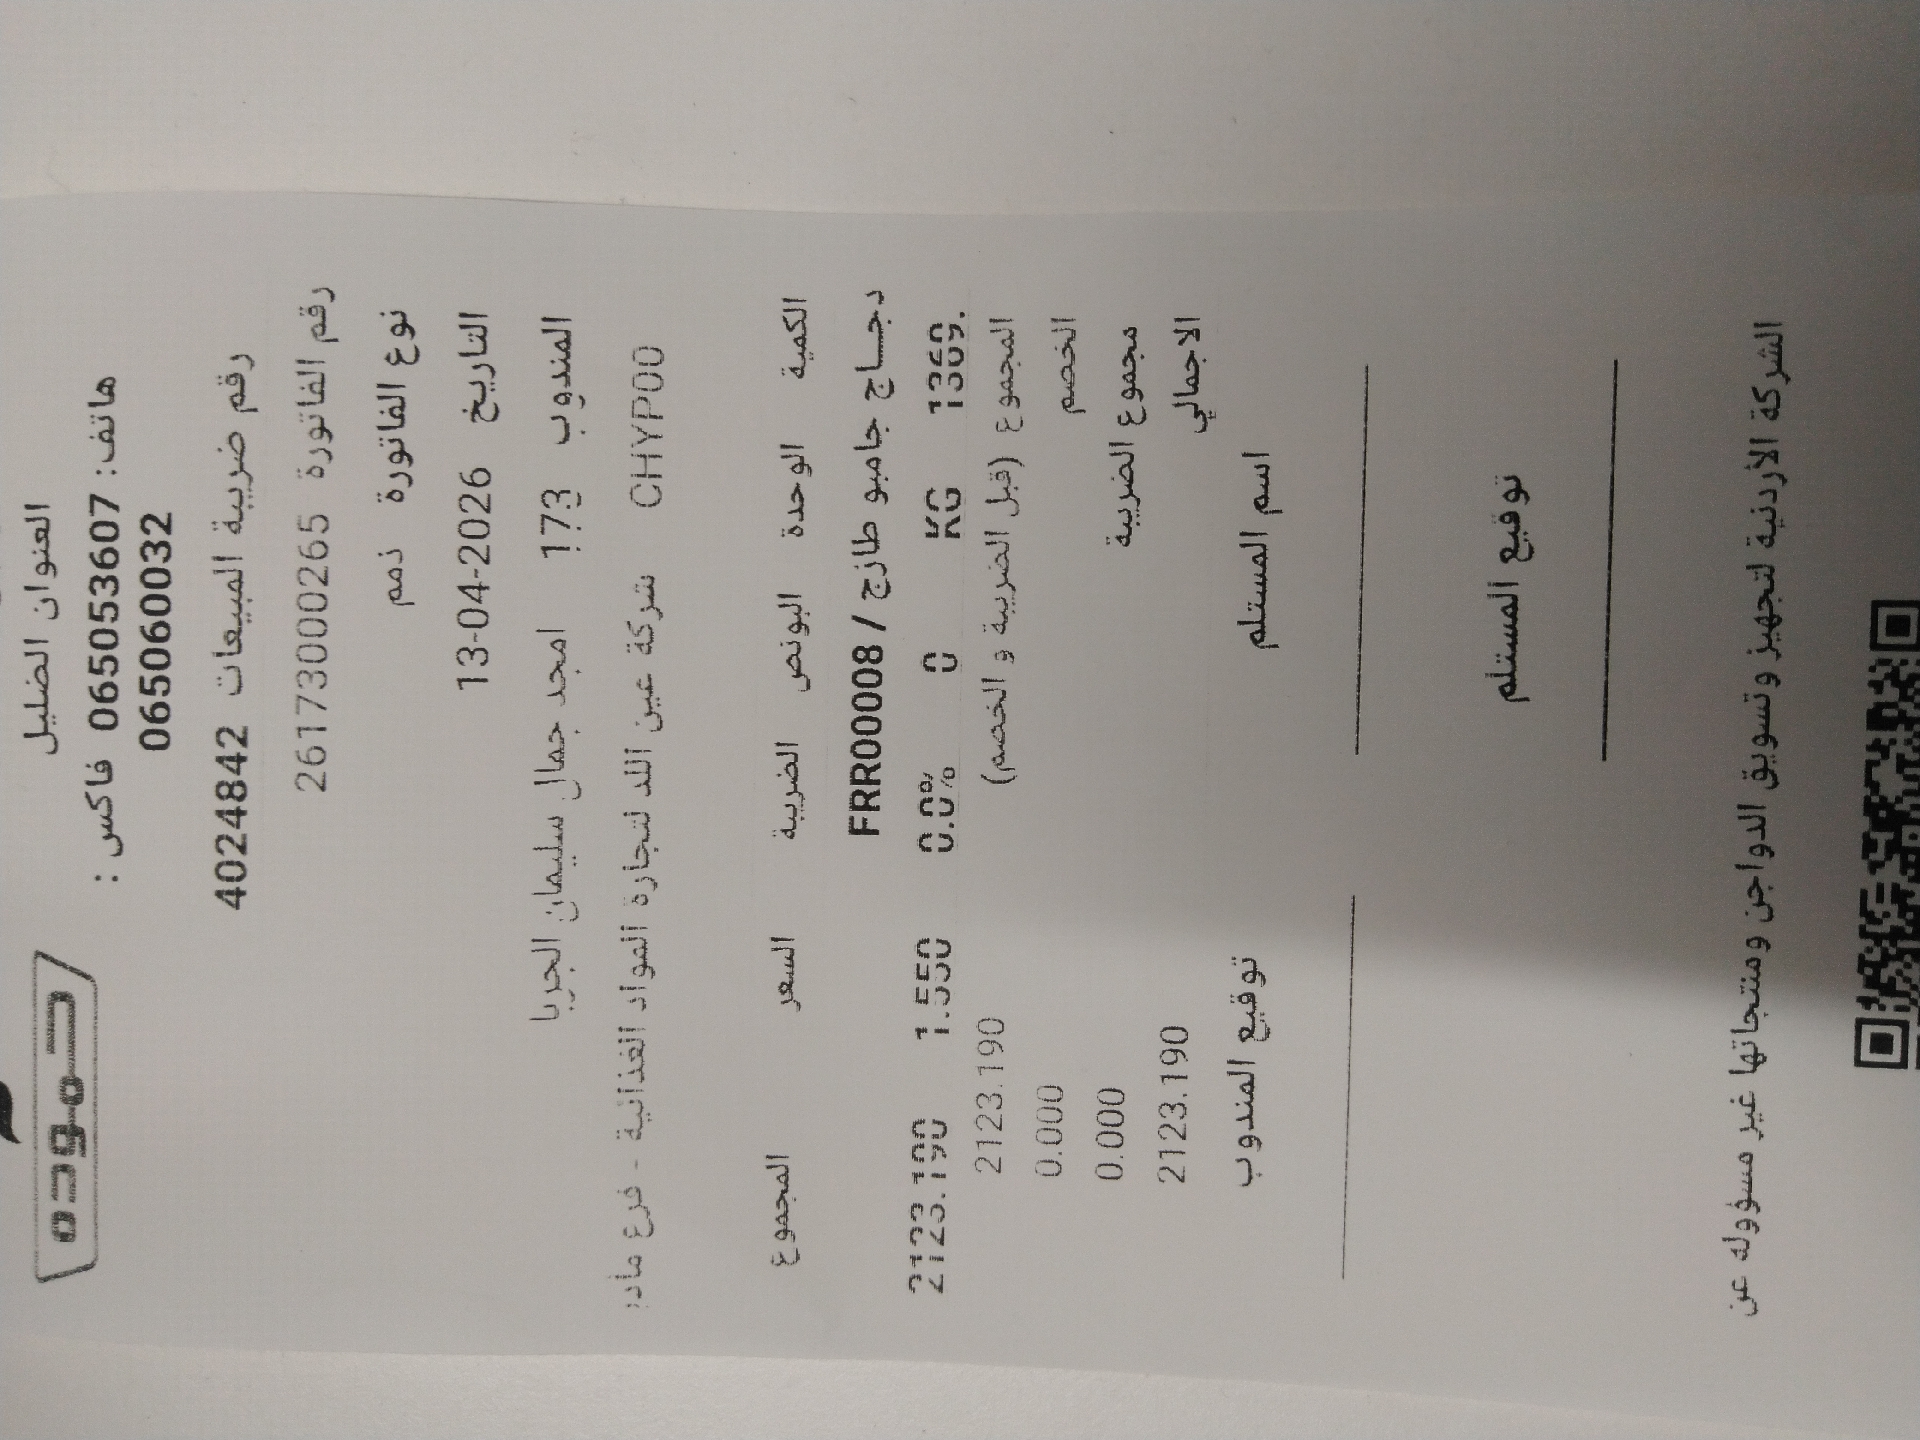 حموده
العنوان الضليل
هاتف: 065053607 فاكس :
065060032
رقم ضريبة المبيعات 4024842
رقم الفاتورة 26173000265
نوع الفاتورة ذمم
التاريخ 13-04-2026
المندوب 173 امجد جمال سليمان الجربا
CHYP00 شركة عين اللد لتجارة المواد الغذائية - فرع
الكمية الوحدة البونص الضريبة السعر المجموع
دجاج جامبو طازج / FRR00008
1369. KG 0 0.0% 1.550 2123.190
المجموع (قبل الضريبة و الخصم) 2123.190
الخصم 0.000
مجموع الضريبة 0.000
الاجمالي 2123.190
اسم المستلم توقيع المندوب
توقيع المستلم
الشركة الأردنية لتجهيز وتسويق الدواجن ومنتجاتها غير مسؤوله عن